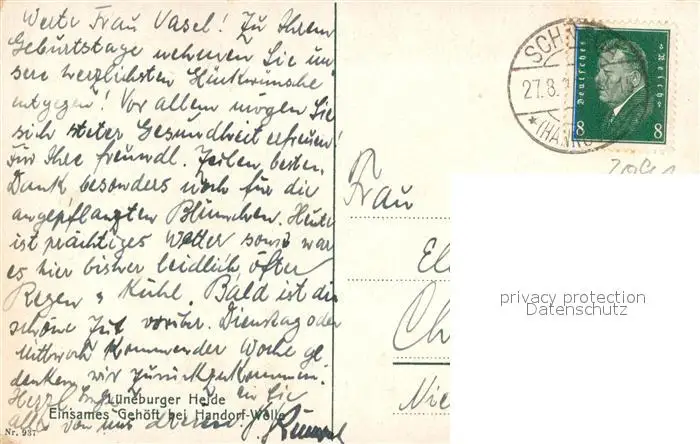 Werte Frau Vasel! Zu Ihrem
Geburtstage nehmen Sie un
sere herzlichsten Glückwünsche
entgegen! Vor allem mögen Sie
sich steter Gesundheit erfreuen!
Für Ihre freundl. Zeilen besten
Dank besonders noch für die
angepflanzten Blümchen. Heute
ist prächtiges Wetter sonst war
es hier bisher leidlich, öfter
Regen u Kühl. Bald ist die
schöne Zeit vorüber. Dienstag oder
Mittwoch kommender Woche ge
denken wir zurückzukommen.
Herzl. an Sie
alle von uns
Lüneburger Heide
Einsames Gehöft bei Handorf-Wolle
Nr. 937
SCH
27.8.
(HANNO
Deutsches Reich
8 8
Frau
El
Ch
privacy protection
Datenschutz